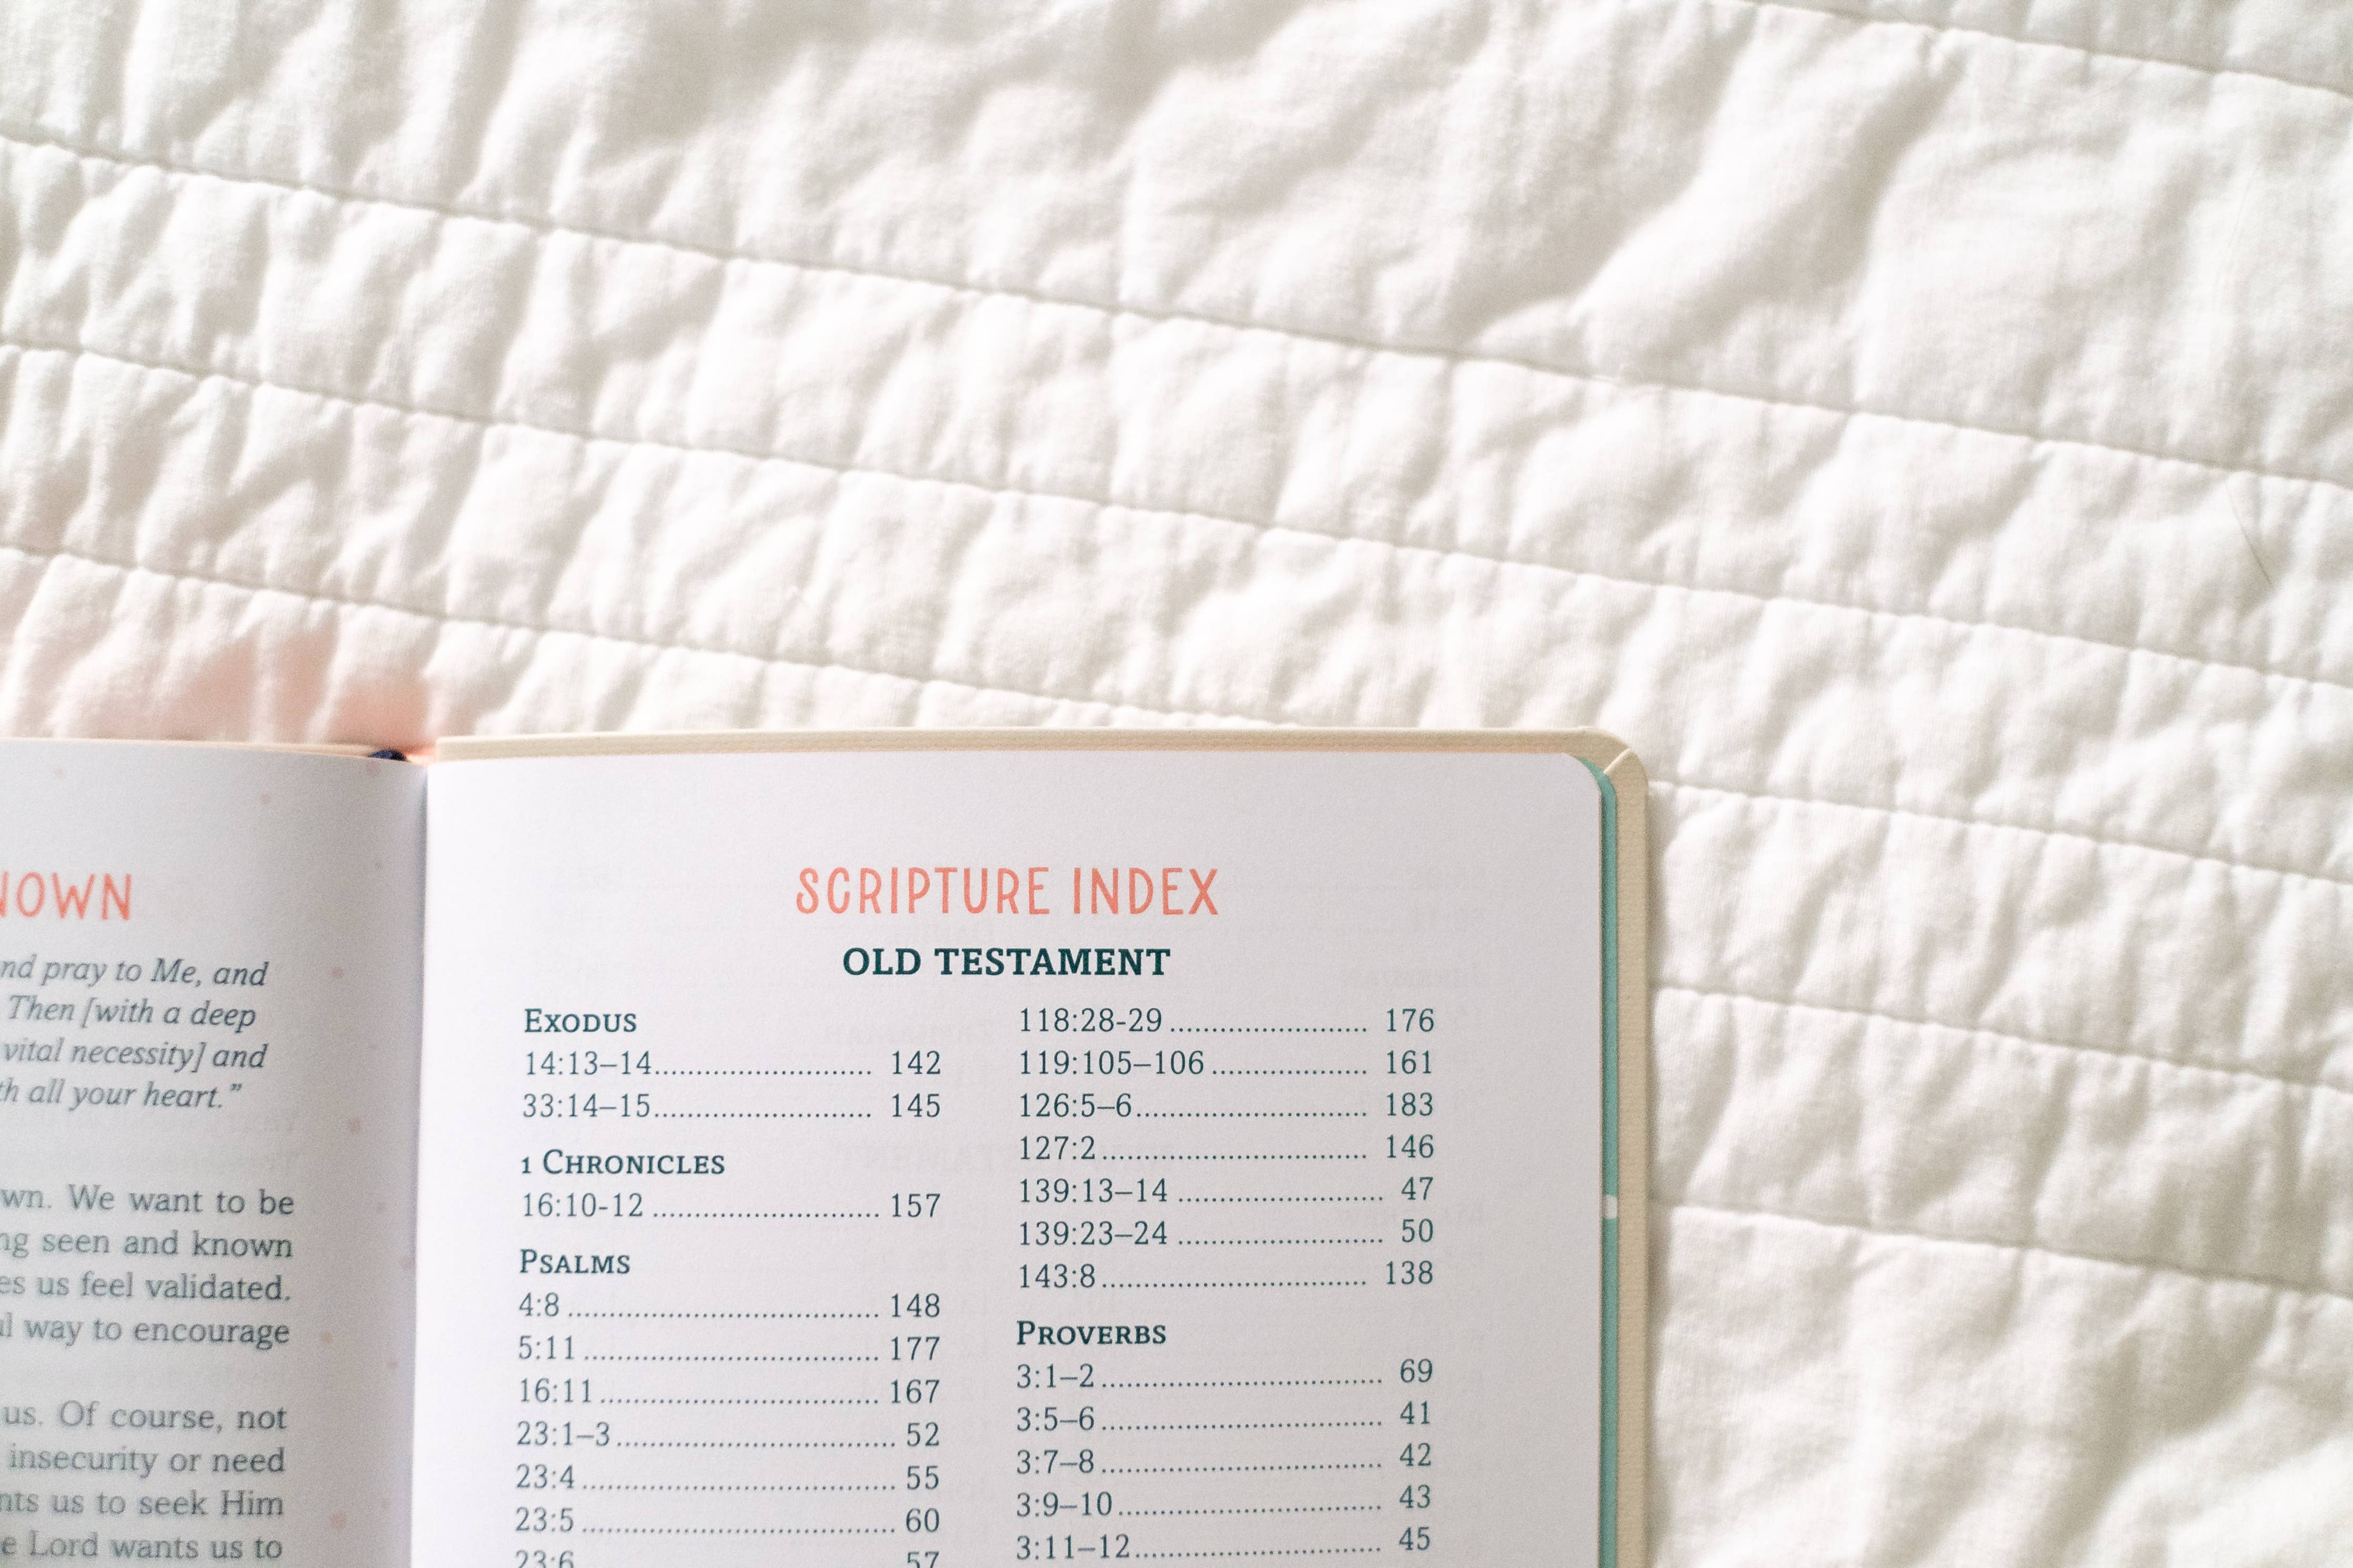 NOWN
nd pray to Me, and
Then [with a deep
vital necessity] and
th all your heart.”
wn. We want to be
ng seen and known
es us feel validated.
ul way to encourage
us. Of course, not
insecurity or need
nts us to seek Him
e Lord wants us to
SCRIPTURE INDEX
OLD TESTAMENT
EXODUS
14:13–14........................ 142
33:14–15........................ 145
1 CHRONICLES
16:10-12 ........................ 157
PSALMS
4:8 ................................ 148
5:11 ............................... 177
16:11 ............................. 167
23:1–3 ............................ 52
23:4 ................................ 55
23:5 ................................ 60
23:6 ................................ 57
118:28-29 ..................... 176
119:105–106 ................. 161
126:5–6 ......................... 183
127:2 ............................. 146
139:13–14 ...................... 47
139:23–24 ...................... 50
143:8 ............................. 138
PROVERBS
3:1–2 .............................. 69
3:5–6 .............................. 41
3:7–8 .............................. 42
3:9–10 ............................ 43
3:11–12 .......................... 45